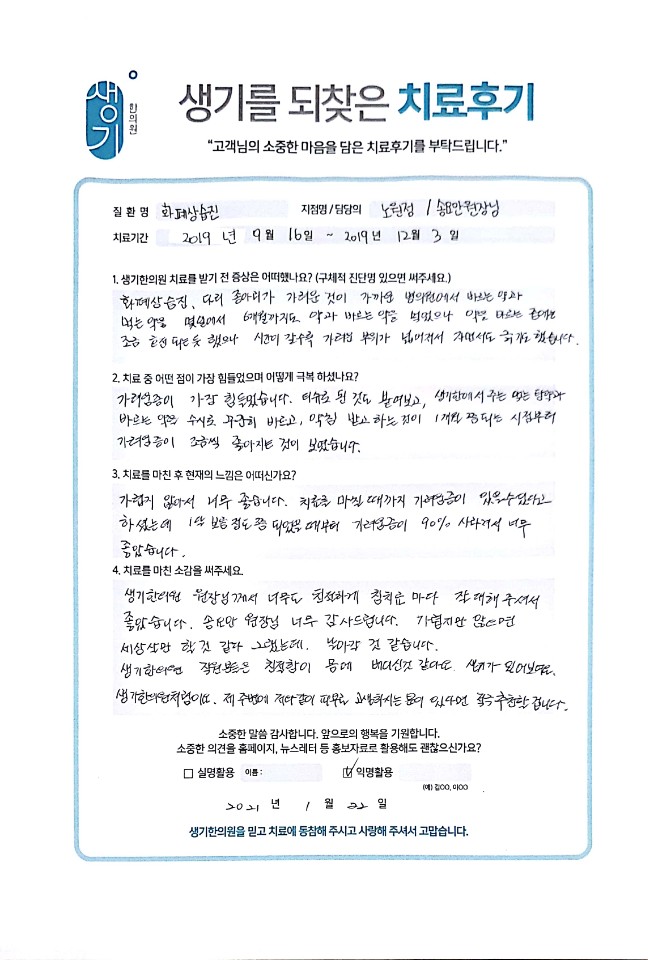 생기
한의원
생기를 되찾은 치료후기
“고객님의 소중한 마음을 담은 치료후기를 부탁드립니다.”
질 환 명 화폐상습진 지점명 / 담당의 노원점 / 송요안원장님
치료기간 2019 년 9 월 16 일 ~ 2019 년 12 월 3 일
1. 생기한의원 치료를 받기 전 증상은 어떠했나요? (구체적 진단명 있으면 써주세요.)
화폐상습진, 다리 종아리가 가려운 것이 가까운 병의원에서 바르는 약과
먹는 약을 몇일에서 6개월까지도 약과 바르는 약을 썼으나 약을 바르는 군데는
조금 호전 되는듯 했으나 시간이 갈수록 가려움 부위가 넓어져서 자면서도 긁기도 했습니다.
2. 치료 중 어떤 점이 가장 힘들었으며 어떻게 극복 하셨나요?
가려움증이 가장 힘들었습니다. 티슈로 된 것도 붙여보고, 생기한에서 주는 먹는 탕약과
바르는 약을 수시로 꾸준히 바르고, 약침 받고 하는것이 1개월 쯤 되는 시점부터
가려움증이 조금씩 좋아지는 것이 보였습니다.
3. 치료를 마친 후 현재의 느낌은 어떠신가요?
가렵지 않아서 너무 좋습니다. 치료를 마칠 때까지 가려움증이 있을수있다고
하셨는데 1달 보름 정도 쯤 되었을 때부터 가려움증이 90% 사라져서 너무
좋았습니다.
4. 치료를 마친 소감을 써주세요.
생기한의원 원장님께서 너무도 친절하게 침치료 마다 잘 대해 주셔서
좋았습니다. 송요안 원장님 너무 감사드립니다. 가렵지만 않으면
세상살만 할 것 같다 그랬는데. 날아갈 것 같습니다.
생기한의원 직원분들은 친절함이 몸에 배이신것 같아요. 생기가 있어보여요.
생기한의원처럼이요. 제 주변에 저와같이 피부로 고생하시는 분이 있다면 적극추천할 겁니다.
소중한 말씀 감사합니다. 앞으로의 행복을 기원합니다.
소중한 의견을 홈페이지, 뉴스레터 등 홍보자료로 활용해도 괜찮으신가요?
실명활용 이름 : 익명활용
(예) 김OO, 이OO
2021 년 1 월 22 일
생기한의원을 믿고 치료에 동참해 주시고 사랑해 주셔서 고맙습니다.